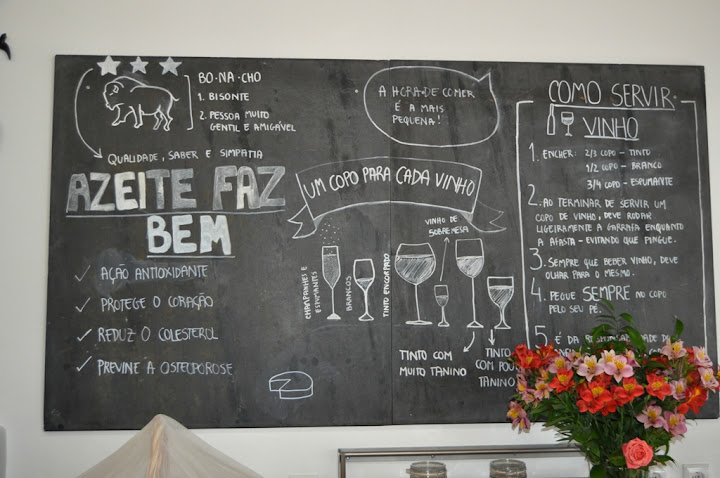 BO·NA·CHO
1. BISONTE
2. PESSOA MUITO
GENTIL E AMIGÁVEL
QUALIDADE, SABER E SIMPATIA
AZEITE FAZ
BEM
AÇÃO ANTIOXIDANTE
PROTEGE O CORAÇÃO
REDUZ O COLESTEROL
PREVINE A OSTEOPOROSE
A HORA DE COMER
É A MAIS
PEQUENA!
UM COPO PARA CADA VINHO
CHAMPANHES E
ESPUMANTES
BRANCOS
TINTO ENCORPADO
VINHO DE
SOBREMESA
TINTO COM
MUITO TANINO
TINTO
COM POUCO
TANINO
COMO SERVIR
VINHO
1. ENCHER: 2/3 COPO - TINTO
1/2 COPO - BRANCO
3/4 COPO - ESPUMANTE
2. AO TERMINAR DE SERVIR UM
COPO DE VINHO, DEVE RODAR
LIGEIRAMENTE A GARRAFA ENQUANTO
A AFASTA - EVITANDO QUE PINGUE.
3. SEMPRE QUE BEBER VINHO, DEVE
OLHAR PARA O MESMO.
4. PEGUE SEMPRE NO COPO
PELO SEU PÉ.
5. É DA